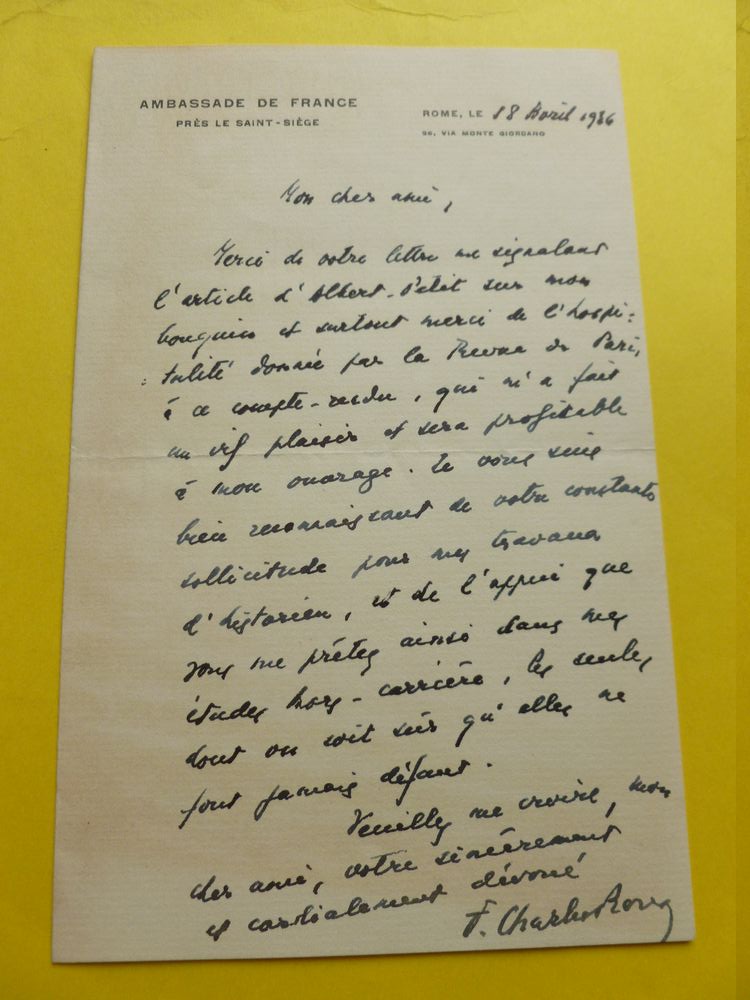 AMBASSADE DE FRANCE
PRÈS LE SAINT-SIÈGE
ROME, LE 18 Avril 1936
96, VIA MONTE GIORDANO
Mon cher ami,
Merci de votre lettre me signalant
l'article d'Albert-Petit sur mon
bouquin et surtout merci de l'hospi-
talité donnée par la Revue de Paris,
à ce compte-rendu, qui m'a fait
un vif plaisir et sera profitable
à mon ouvrage. Je vous suis
bien reconnaissant de votre constante
sollicitude pour mes travaux
d'historien, et de l'appui que
vous me prêtez ainsi dans mes
études hors-carrière, les seules
dont on soit sûr qu'elles ne
font jamais défaut.
Veuillez me croire, mon
cher ami, votre sincèrement
et cordialement dévoué
F. Charles-Roux